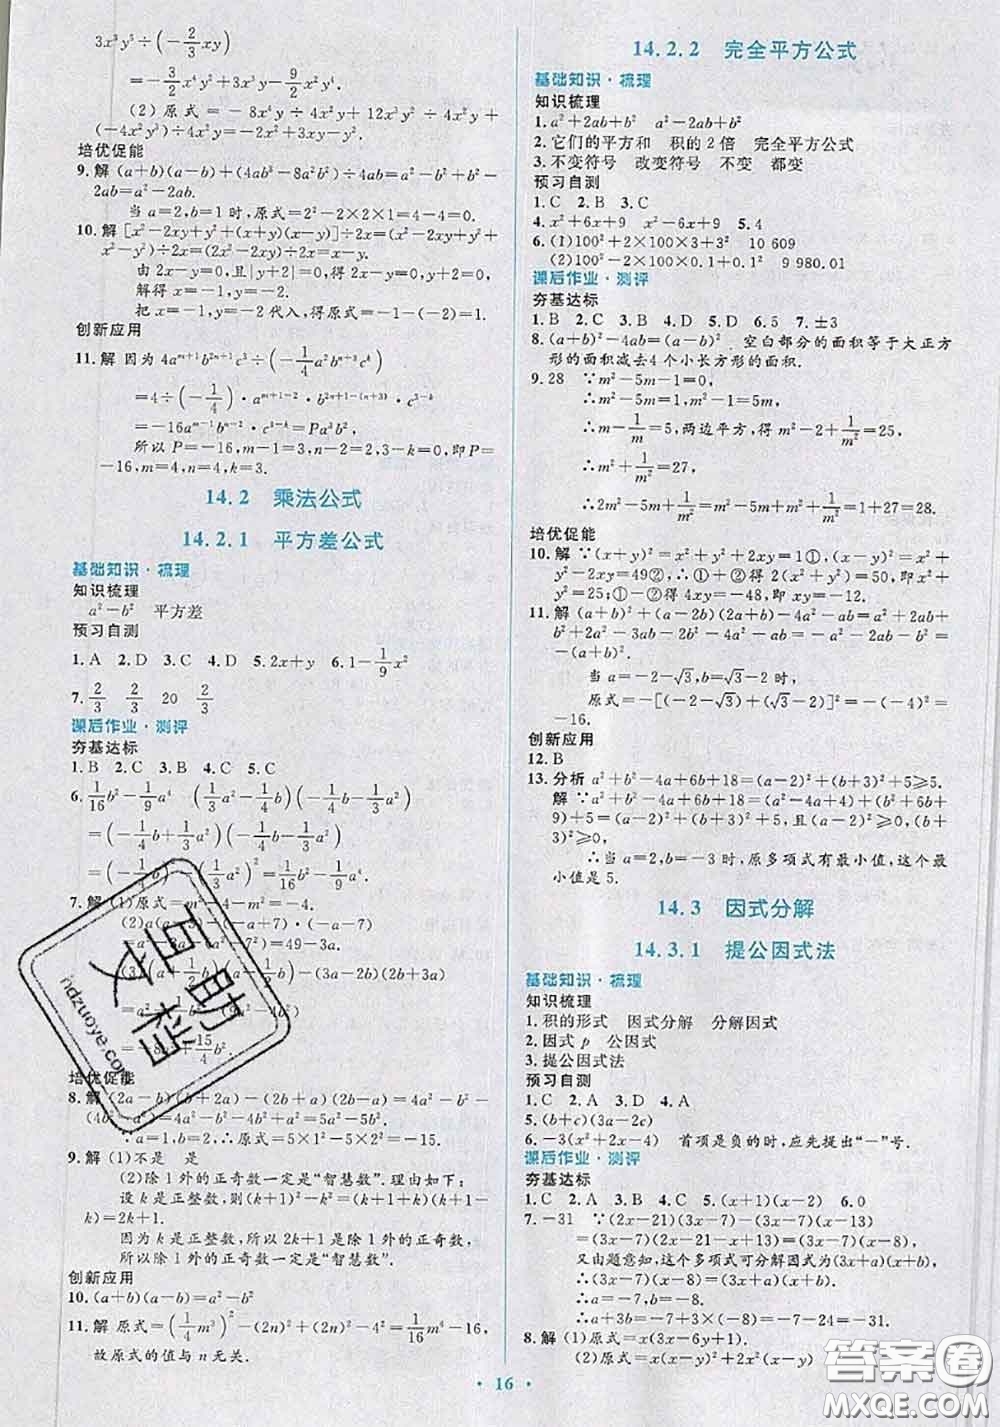 3x³y⁵÷(-2/3xy)
=-3/2x⁴y²+6x³y³-9/2x²y⁴.
(2)原式=-8x⁴y÷4x²y+12x³y÷
(-4x²y)÷4x²y=-2x²+3x-1.
培优促能
9.解 (a+b)(a-b)+(4ab³-8a²b²)÷
4ab=a²-b²+b²-2ab=a²-2ab.
当a=2,b=1时,原式=2²-2×2×1=4-4=0.
10.解 [x²-2xy+y²+(x+y)(x-y)]÷2x=
(2x²-2xy)÷2x=x-y.
由2x-y=0,且|y+2|=0,得2x-y=0,
解得x=-1,y=-2.
把x=-1,y=-2代入,得原式=-1-(-2)=1.
创新应用
11.解 因为4aᵐ⁺¹b²ⁿ⁺¹c³÷(-1/4a²bⁿ⁺³cᵏ)
=4÷(-1/4)·aᵐ⁺¹⁻²·b²ⁿ⁺¹⁻⁽ⁿ⁺³⁾·c³⁻ᵏ
=-16aᵐ⁻¹bⁿ⁻²·c³⁻ᵏ=Pa³b²,
所以P=-16,m-1=3,n-2=2,3-k=0,即P=
-16,m=4,n=4,k=3.
14.2 乘法公式
14.2.1 平方差公式
基础知识·梳理
知识梳理
a²-b² 平方差
预习自测
1.A 2.D 3.C 4.D 5.2x+y 6.1-1/9x²
7.2/3 2/3 20 2/3
课后作业·测评
夯基达标
1.B 2.C 3.B 4.C 5.C
6.1/16b²-1/9a⁴ (1/3a²-1/4b)(-1/3a²-1/4b)
=(-1/4b+1/3a²)(-1/4b-1/3a²)=
(-1/4b)²-(1/3a²)²=1/16b²-1/9a⁴
7.解 (1)原式=m²-4-m²=-4.
=a²-8a-(a²-8a+a-7²)=49-a.
15/4b²
培优促能
8.解 (2a-b)(b+2a)-(2b+a)(2b-a)=4a²-b²-
(4b²-a²)=4a²-b²-4b²+a²=5a²-5b².
∵a=1,b=2,∴原式=5×1²-5×2²=-15.
9.解 (1)不是 是
(2)除1外的正奇数一定是“智慧数”.理由如下:
设k是正整数,则(k+1)²-k²=(k+1+k)(k+1-
k)=2k+1.
因为k是正整数,所以2k+1是除1外的正奇数,
所以除1外的正奇数一定是“智慧数”.
创新应用
10.(a+b)(a-b)=a²-b²
11.解 原式=(1/4m³)²-(2n)²+(2n)²-4²=1/16m⁶-16,
故原式的值与n无关.
14.2.2 完全平方公式
基础知识·梳理
知识梳理
1.a²+2ab+b² a²-2ab+b²
2.它们的平方和 积的2倍 完全平方公式
3.不变符号 改变符号 不变 都变
预习自测
1.C 2.B 3.C
4.x²+6x+9 x²-6x+9 5.4
6.(1)100²+2×100×3+3² 10 609
(2)100²-2×100×0.1+0.1² 9 980.01
课后作业·测评
夯基达标
1.B 2.C 3.B 4.D 5.D 6.5 7.±3
8.(a+b)²-4ab=(a-b)² 空白部分的面积等于大正方
形的面积减去4个小长方形的面积.
9.28 ∵m²-5m-1=0,
∴m²-5m=1,m²-1=5m,
∴m-1/m=5,两边平方,得m²-2+1/m²=25,
∴m²+1/m²=27,
∴2m²-5m+1/m²=m²-5m+m²+1/m²=1+27=28.
培优促能
10.解 ∵(x+y)²=x²+y²+2xy=1①,(x-y)²=x²+
y²-2xy=49②,∴①+②得2(x²+y²)=50,即x²+
y²=25;①-②得4xy=-48,即xy=-12.
11.解 (a+b)²+(a-2b)(2a+b)-4a²=a²+2ab+
b²+2a²+ab-4ab-2b²-4a²=-a²-ab-b²
-(a+b)².
当a=-2-√3,b=√3-2时,
原式=-[(-2-√3)+(√3-2)]²=-(-4)²=
-16.
创新应用
12.B
13.分析 a²+b²-4a+6b+18=(a-2)²+(b+3)²+5≥5.
解 ∵a²+b²-4a+6b+18=(a²-4a+4)+(b²+6b+
9)+5=(a-2)²+(b+3)²+5,(a-2)²≥0,(b+
3)²≥0,
∴当a=2,b=-3时,原多项式有最小值,这个最
小值是5.
14.3 因式分解
14.3.1 提公因式法
基础知识·梳理
知识梳理
1.积的形式 因式分解 分解因式
2.因式p 公因式
3.提公因式法
预习自测
1.C 2.A 3.D 4.A
5.(b+c)(3a-2c)
6.-3(x²+2x-7) 首项是负的时,应先提出“-”号.
课后作业·测评
夯基达标
1.C 2.A 3.A 4.C 5.(x+1)(x-2) 6.0
7.-31 ∵(2x-21)(3x-7)-(3x-7)(x-13)
=(3x-7)(2x-21-x+13)=(3x-7)(x-8),
又由题意知,这个多项式可分解因式为(3x+a)(x+b),
∴(3x-7)(x-8)=(3x+a)(x+b),
∴a=-7,b=-8,
∴a+3b=-7+3×(-8)=-7-24=-31
8.解 (1)原式=3x(x-6y+1).
(2)原式=(x-y)(a²-2x)
· 16 ·
互助文档
hdzuoye.com
答案圈
MXQE.COM